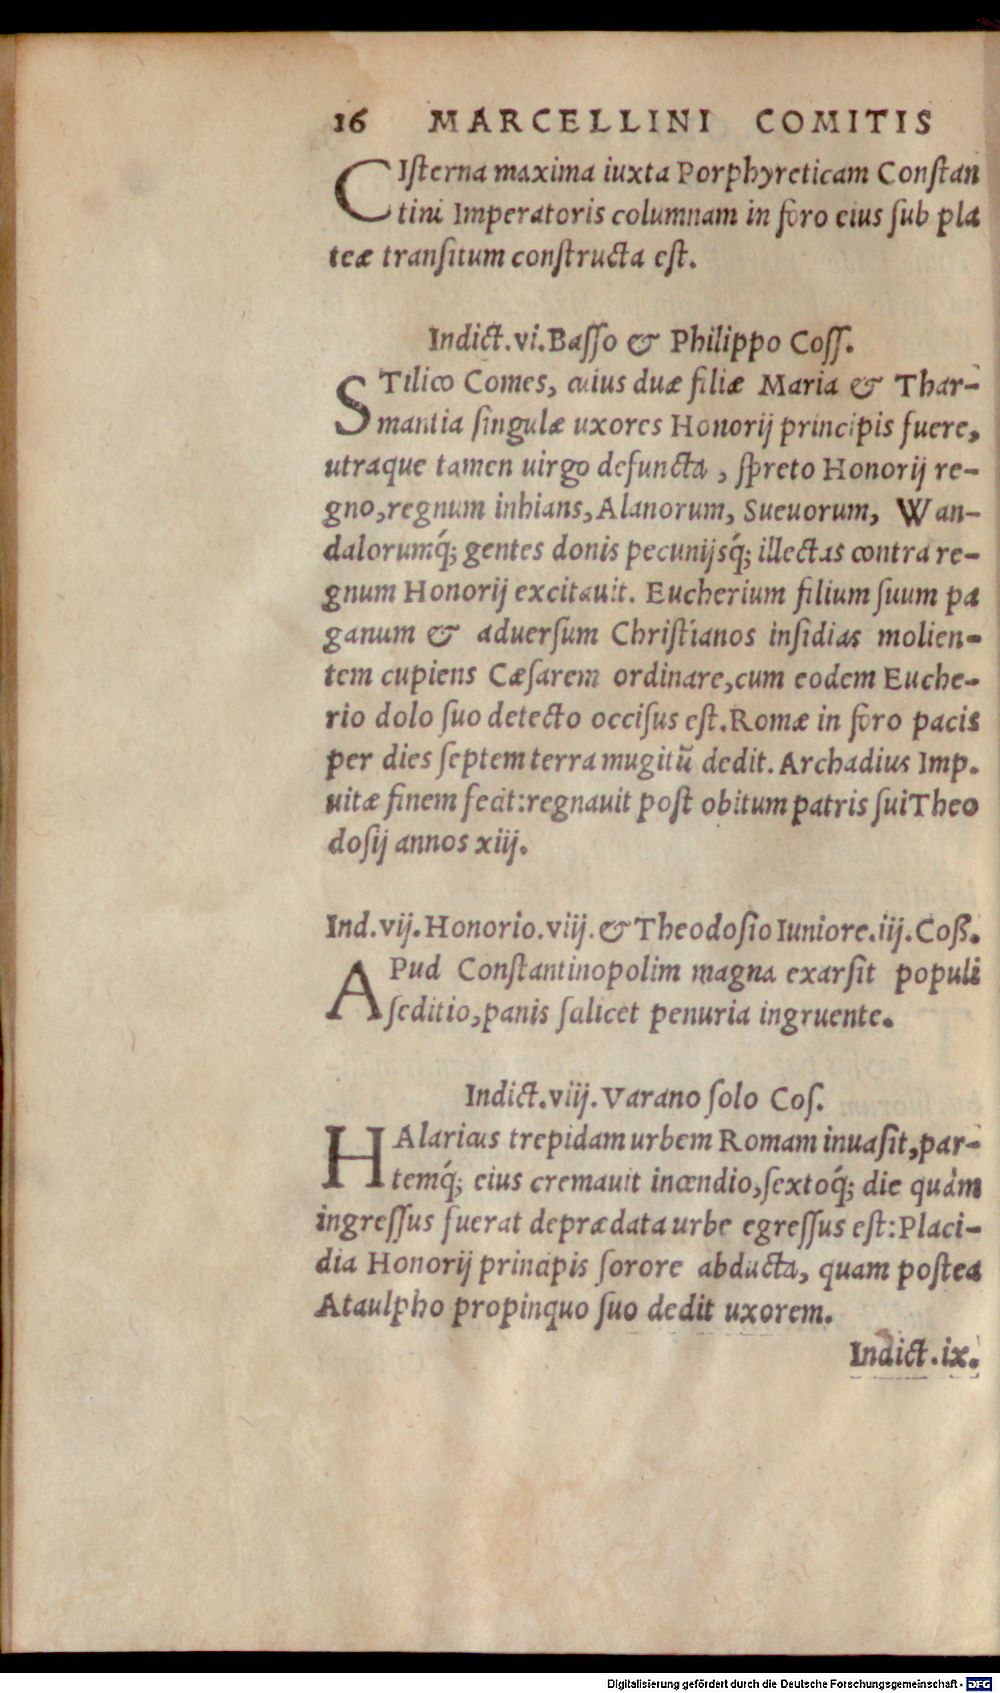 16 MARCELLINI COMITIS
CIſterna maxima iuxta Porphyreticam Conſtan
tini Imperatoris columnam in foro eius ſub pla
teæ tranſitum constructa eſt.
Indict.vi.Baſſo & Philippo Coſſ.
STilico Comes, cuius duæ filiæ Maria & Thar-
mantia ſingulæ uxores Honorij principis fuere,
utraque tamen uirgo defuncta, ſpreto Honorij re-
gno,regnum inhians,Alanorum, Sueuorum, Wan-
dalorumq́; gentes donis pecunijsq́; illectas contra re-
gnum Honorij excitauit. Eucherium filium ſuum pa
ganum & aduerſum Chriſtianos inſidias molien-
tem cupiens Cæſarem ordinare,cum eodem Euche-
rio dolo ſuo detecto occiſus eſt.Romæ in foro pacis
per dies ſeptem terra mugitū dedit. Archadius Imp.
uitæ finem fecit:regnauit poſt obitum patris ſui Theo
doſij annos xiij.
Ind.vij.Honorio.viij.& Theodoſio Iuniore.iij.Coß.
APud Conſtantinopolim magna exarſit populi
ſeditio,panis ſalicet penuria ingruente.
Indict.viij.Varano ſolo Coſ.
HAlaricus trepidam urbem Romam inuaſit,par-
temq́; eius cremauit incendio,ſextoq́; die quàm
ingreſſus fuerat deprædata urbe egreſſus eſt:Placi-
dia Honorij principis ſorore abducta, quam poſtea
Ataulpho propinquo ſuo dedit uxorem.
Indict.ix.
Digitalisierung gefördert durch die Deutsche Forschungsgemeinschaft - DFG